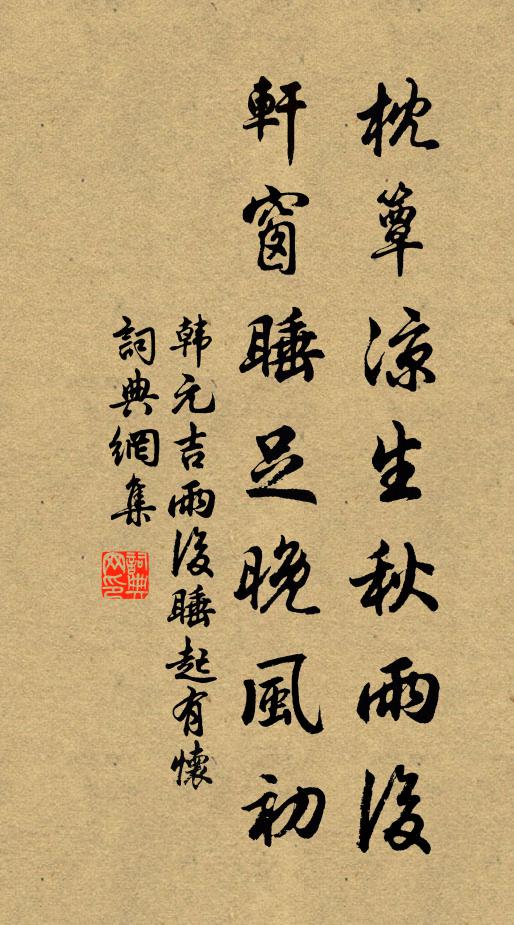 枕簟凉生秋雨後
軒窗睡足晚風初
韩元吉雨後睡起有懷
詞典網集
詞典網印